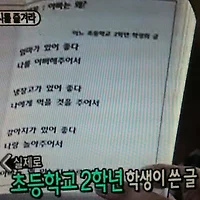 를 즐겨라
아빠는 왜?
어느 초등학교 2학년 학생의 글
엄마가 있어 좋다
나를 이뻐해주어서
냉장고가 있어 좋다
나에게 먹을 것을 주어서
강아지가 있어 좋다
나랑 놀아주어서
실제로
초등학교 2학년 학생이 쓴 글